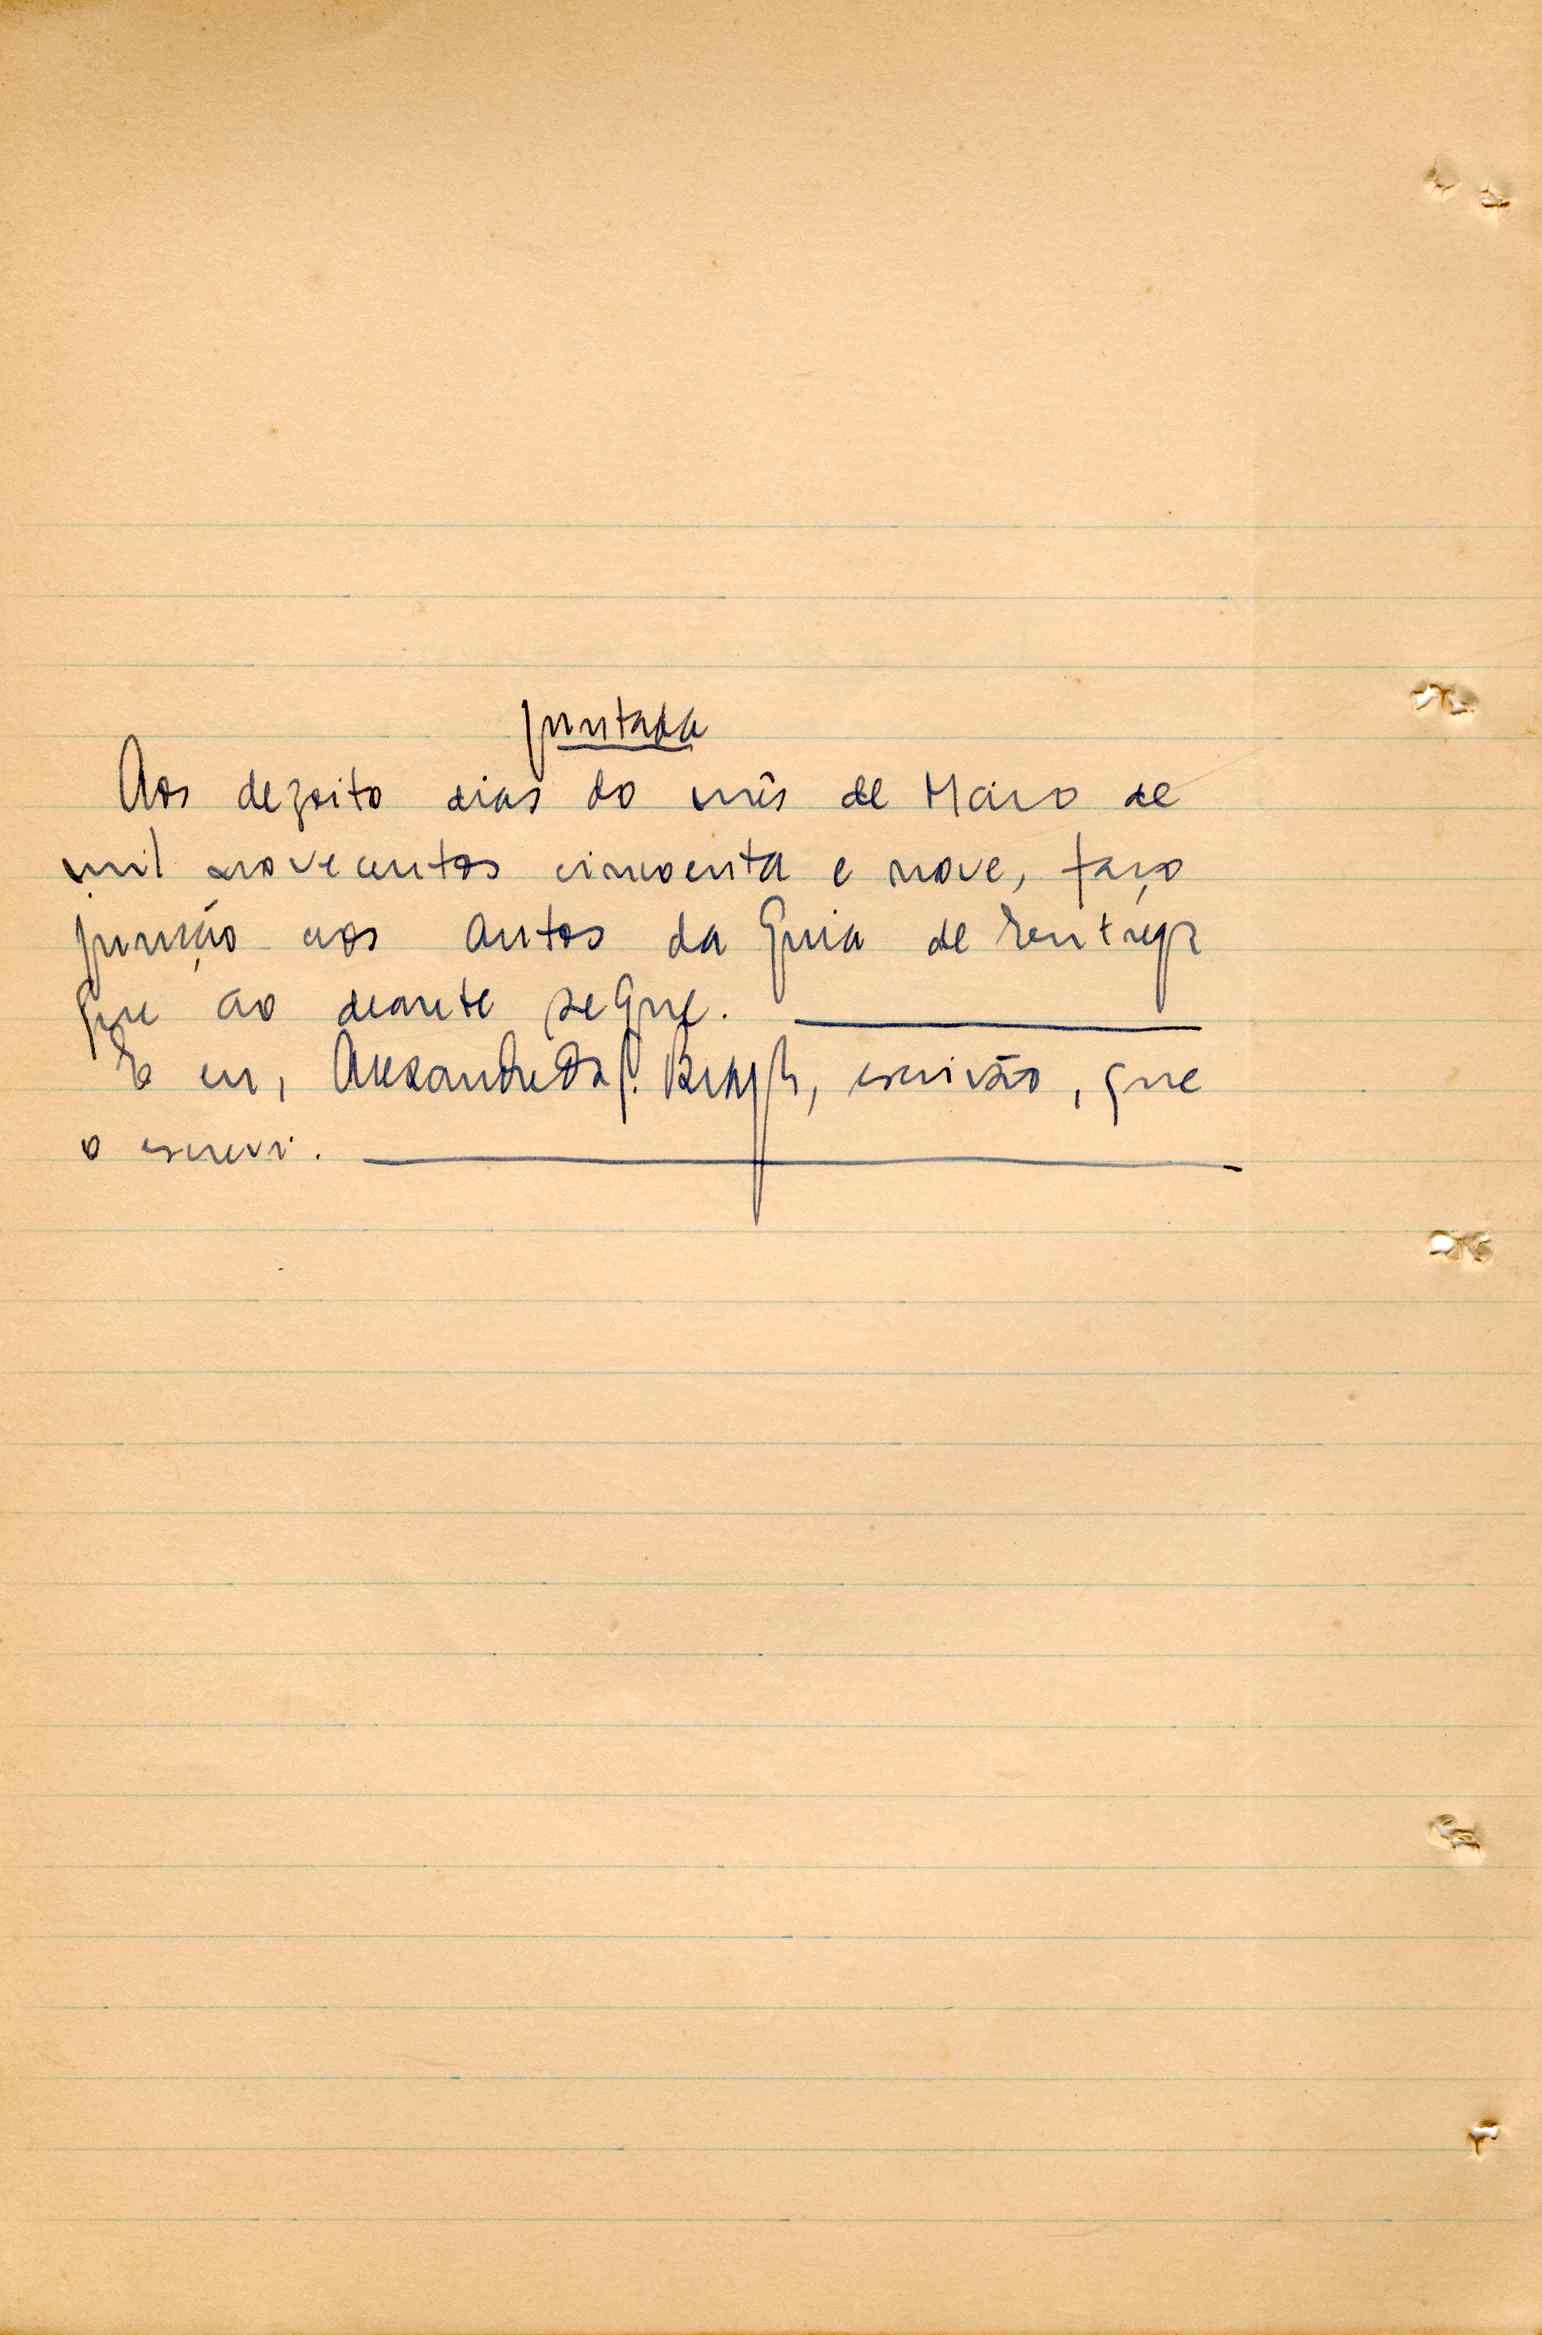 Juntada
Aos dezoito dias do mês de Maio de
mil novecentos cincoenta e nove, faço
junção aos autos da Guia de Entrega
que ao deante segue.
E eu, Alexandre, escrivão, que
o escrevi.